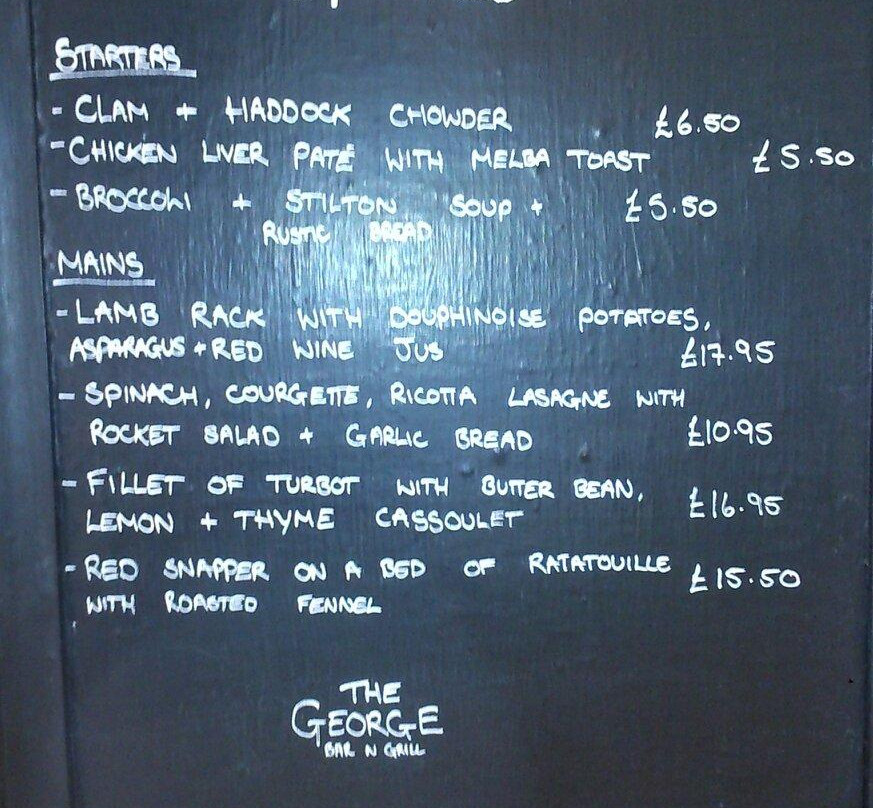 STARTERS
- CLAM + HADDOCK CHOWDER £6.50
- CHICKEN LIVER PATÉ WITH MELBA TOAST £5.50
- BROCCOLI + STILTON SOUP + £5.50
RUSTIC BREAD
MAINS
- LAMB RACK WITH DOUPHINOISE POTATOES,
ASPARAGUS + RED WINE JUS £17.95
- SPINACH, COURGETTE, RICOTTA LASAGNE WITH
ROCKET SALAD + GARLIC BREAD £10.95
- FILLET OF TURBOT WITH BUTTER BEAN,
LEMON + THYME CASSOULET £16.95
- RED SNAPPER ON A BED OF RATATOUILLE
WITH ROASTED FENNEL £15.50
THE
GEORGE
BAR N GRILL